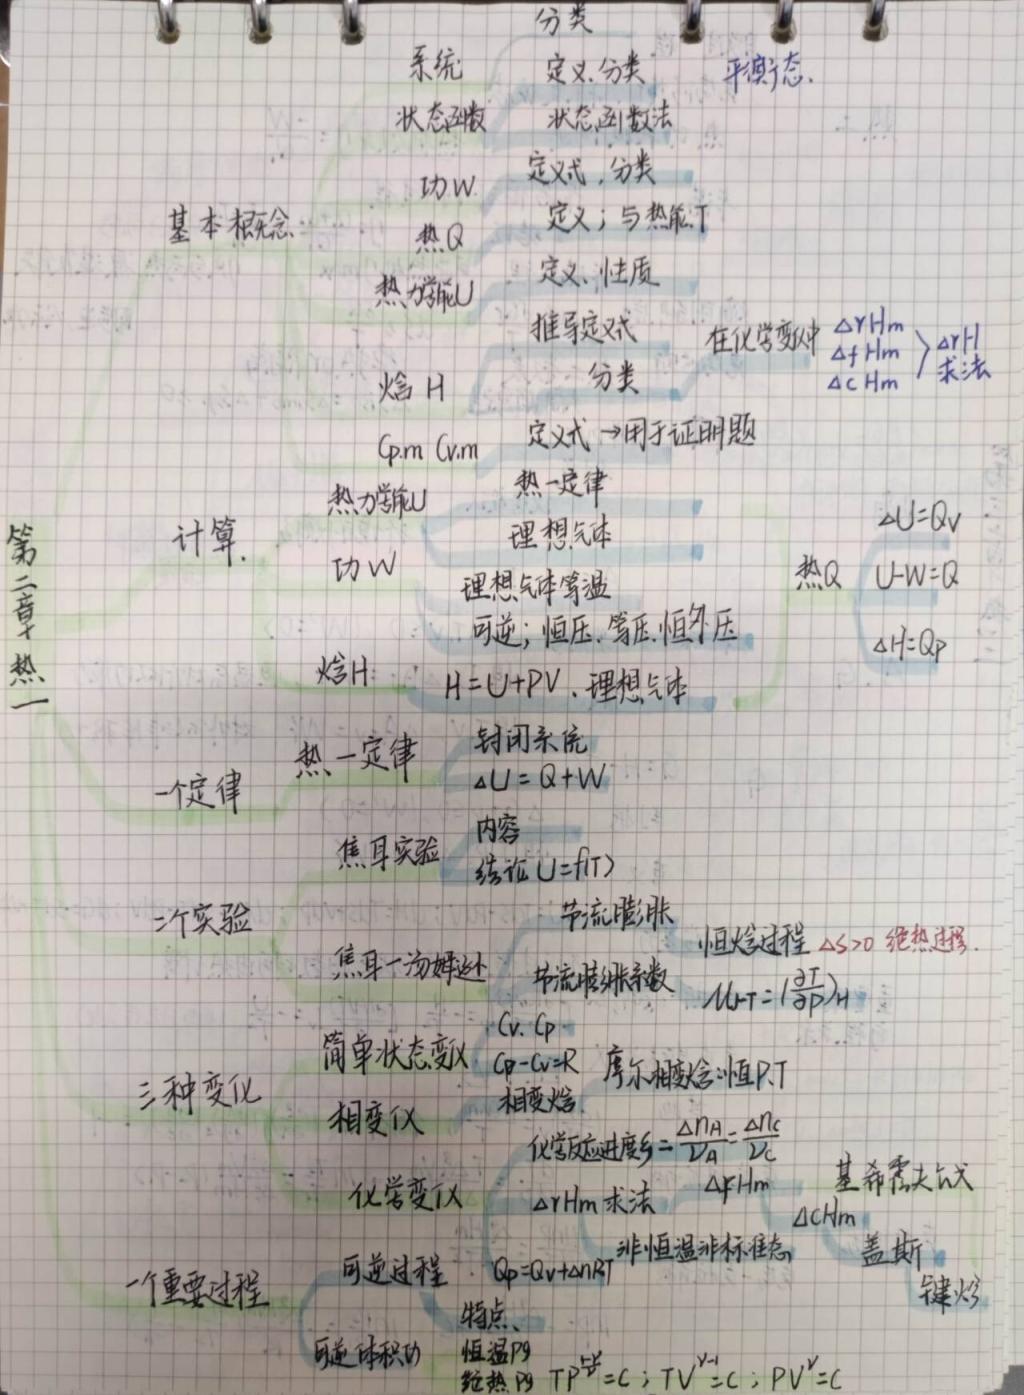 第二章 热一
基本概念
分类
系统 定义、分类 平衡态.
状态函数 状态函数法
功W 定义式，分类
热Q 定义；与热能.T
热力学能U 定义、性质
焓H 推导定义式 在化学变化中 ΔrHm ΔfHm ΔcHm ΔrH 求法
分类
Cp.m Cv.m 定义式 →用于证明题
计算.
热力学能U 热一定律
理想气体
功W 理想气体等温
可逆；恒压、等压、恒外压
焓H H=U+PV、理想气体
热Q ΔU=Qv
U-W=Q
ΔH=Qp
一个定律 热一定律 封闭系统
ΔU=Q+W
二个实验 焦耳实验 内容
结论U=f(T)
焦耳一汤姆逊 节流膨胀 恒焓过程 ΔS>0 绝热过程.
节流膨胀系数 μJ-T=(∂T/∂P)H
三种变化 简单状态变化 Cv. Cp
Cp-Cv=R
相变化 相变焓 摩尔相变焓:恒P.T
化学变化 化学反应进度ξ=ΔnA/νA=Δnc/νc
ΔrHm求法 ΔfHm ΔcHm 基希霍夫公式
盖斯
键焓
非恒温非标准态
Qp=Qv+ΔnRT
一个重要过程 可逆过程 特点、
可逆体积功 恒温Pg
绝热Pg TP =C；TV^γ-1=C；PV^γ=C